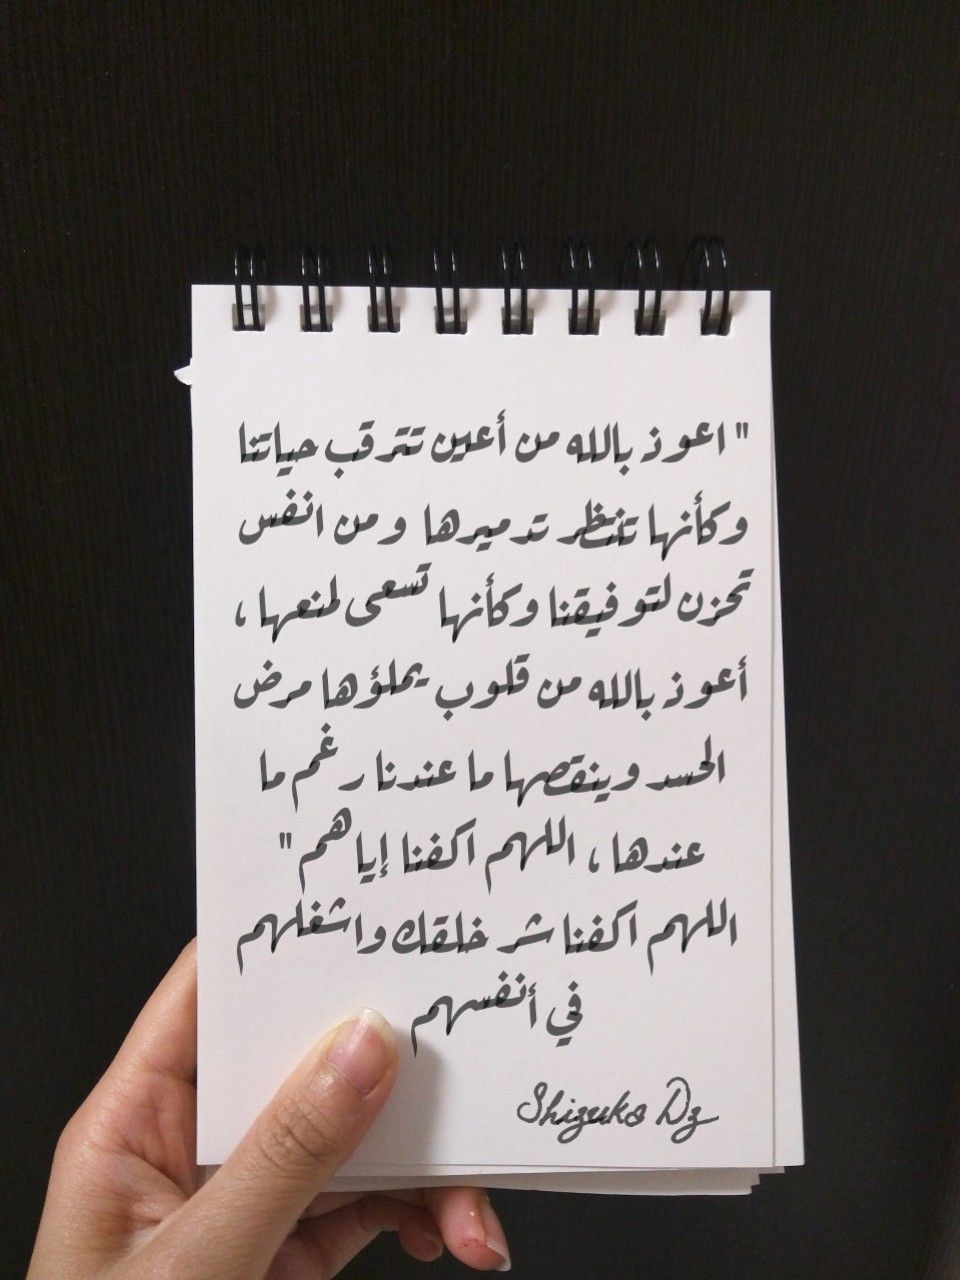 " اعوذ بالله من أعين تترقب حياتنا
وكأنها تنتظر تدميرها ومن انفس
تحزن لتوفيقنا وكأنها تسعى لمنعها ،
أعوذ بالله من قلوب يملؤها مرض
الحسد وينقصها ما عندنا رغم ما
عندها ، اللهم اكفنا إياهم "
اللهم اكفنا شر خلقك واشغلهم
في أنفسهم
Shizuka Dz